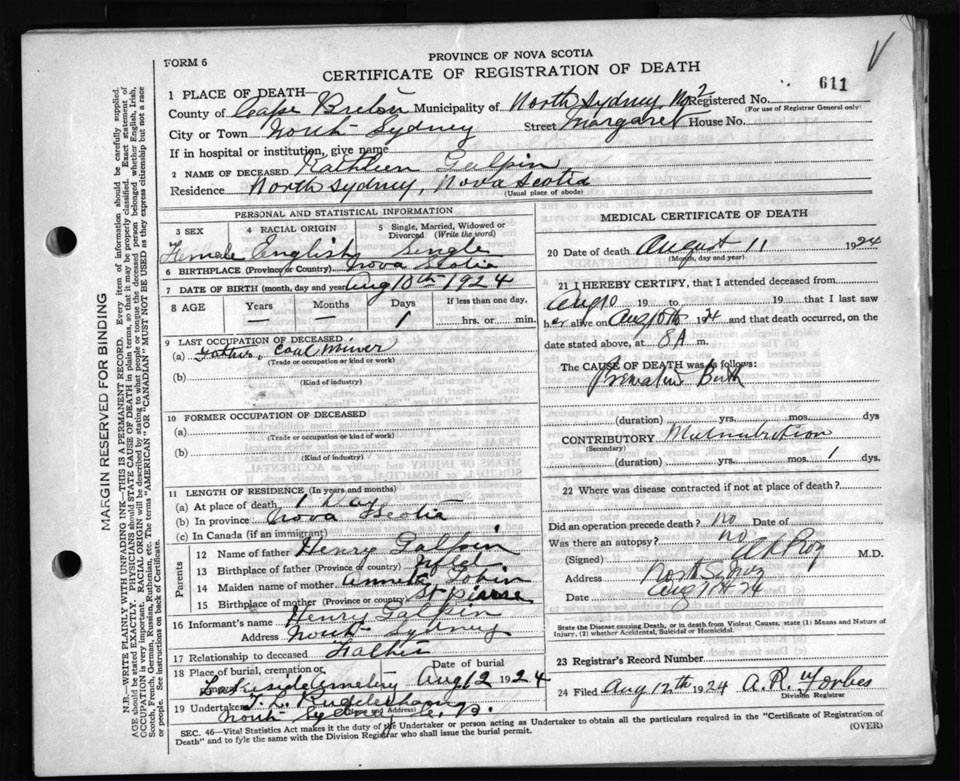 FORM 6
PROVINCE OF NOVA SCOTIA
CERTIFICATE OF REGISTRATION OF DEATH
611
V
1 PLACE OF DEATH—
County of Cape Breton Municipality of North Sydney, No 2 Registered No.
(For use of Registrar General only)
City or Town North Sydney Street Margaret House No.
If in hospital or institution, give name
2 NAME OF DECEASED Kathleen Galpin
Residence North Sydney, Nova Scotia
(Usual place of abode)
PERSONAL AND STATISTICAL INFORMATION
3 SEX 4 RACIAL ORIGIN 5 Single, Married, Widowed or Divorced (Write the word)
Female English Single
6 BIRTHPLACE (Province or Country) Nova Scotia
7 DATE OF BIRTH (month, day and year) Aug 10th 1924
8 AGE Years Months Days If less than one day,
— — 1 hrs. or min.
9 LAST OCCUPATION OF DECEASED
(a) Father, Coal Miner
(Trade or occupation or kind or work)
(b)
(Kind of industry)
10 FORMER OCCUPATION OF DECEASED
(a)
(Trade or occupation or kind of work)
(b)
(Kind of industry)
11 LENGTH OF RESIDENCE (In years and months)
(a) At place of death 1 Day
(b) In province Nova Scotia
(c) In Canada (if an immigrant)
Parents
12 Name of father Henry Galpin
13 Birthplace of father (Province or country) Nfld
14 Maiden name of mother
15 Birthplace of mother (Province or country) St Pierre
16 Informant's name Henry Galpin
Address North Sydney
17 Relationship to deceased Father
18 Place of burial, cremation, or Date of burial
Lakeside Cemetery Aug 12 1924
19 Undertaker
North Sydney C. B.
MEDICAL CERTIFICATE OF DEATH
20 Date of death August 11 1924
(Month, day and year)
21 I HEREBY CERTIFY, that I attended deceased from
Aug 10 19 to 19 that I last saw
her alive on Aug 10th 1924 and that death occurred, on
date stated above, at 8 A m.
The CAUSE OF DEATH was as follows:
Premature Birth
(duration) yrs. mos. dys
CONTRIBUTORY Malnutrition
(Secondary)
(duration) yrs. mos. 1 dys.
22 Where was disease contracted if not at place of death?
Did an operation precede death? no Date of
Was there an autopsy? no
(Signed) M.D.
Address North Sydney
Date Aug 11th 24
State the Disease causing Death, or in death from Violent Causes, state (1) Means and Nature of
Injury, (2) whether Accidental, Suicidal or Homicidal.
23 Registrar's Record Number
24 Filed Aug 12th 1924 A. R. Forbes
Division Registrar
SEC. 46—Vital Statistics Act makes it the duty of the Undertaker or person acting as Undertaker to obtain all the particulars required in the "Certificate of Registration of
Death" and to fyle the same with the Division Registrar who shall issue the burial permit.
(OVER)
MARGIN RESERVED FOR BINDING
N.B.—WRITE PLAINLY WITH UNFADING INK—THIS IS A PERMANENT RECORD. Every item of information should be carefully supplied.
AGE should be stated EXACTLY. PHYSICIANS should STATE CAUSE OF DEATH in plain terms, so that it may be properly classified. Exact statement of
OCCUPATION is very important. RACIAL ORIGIN will be described by stating to what people or tongue the deceased person belonged whether English, Irish,
Scotch, French, German, Russian, Ruthenian, etc. The terms "AMERICAN" OR "CANADIAN" MUST NOT BE USED as they express citizenship but not a race
or people. See instructions on back of Certificate.